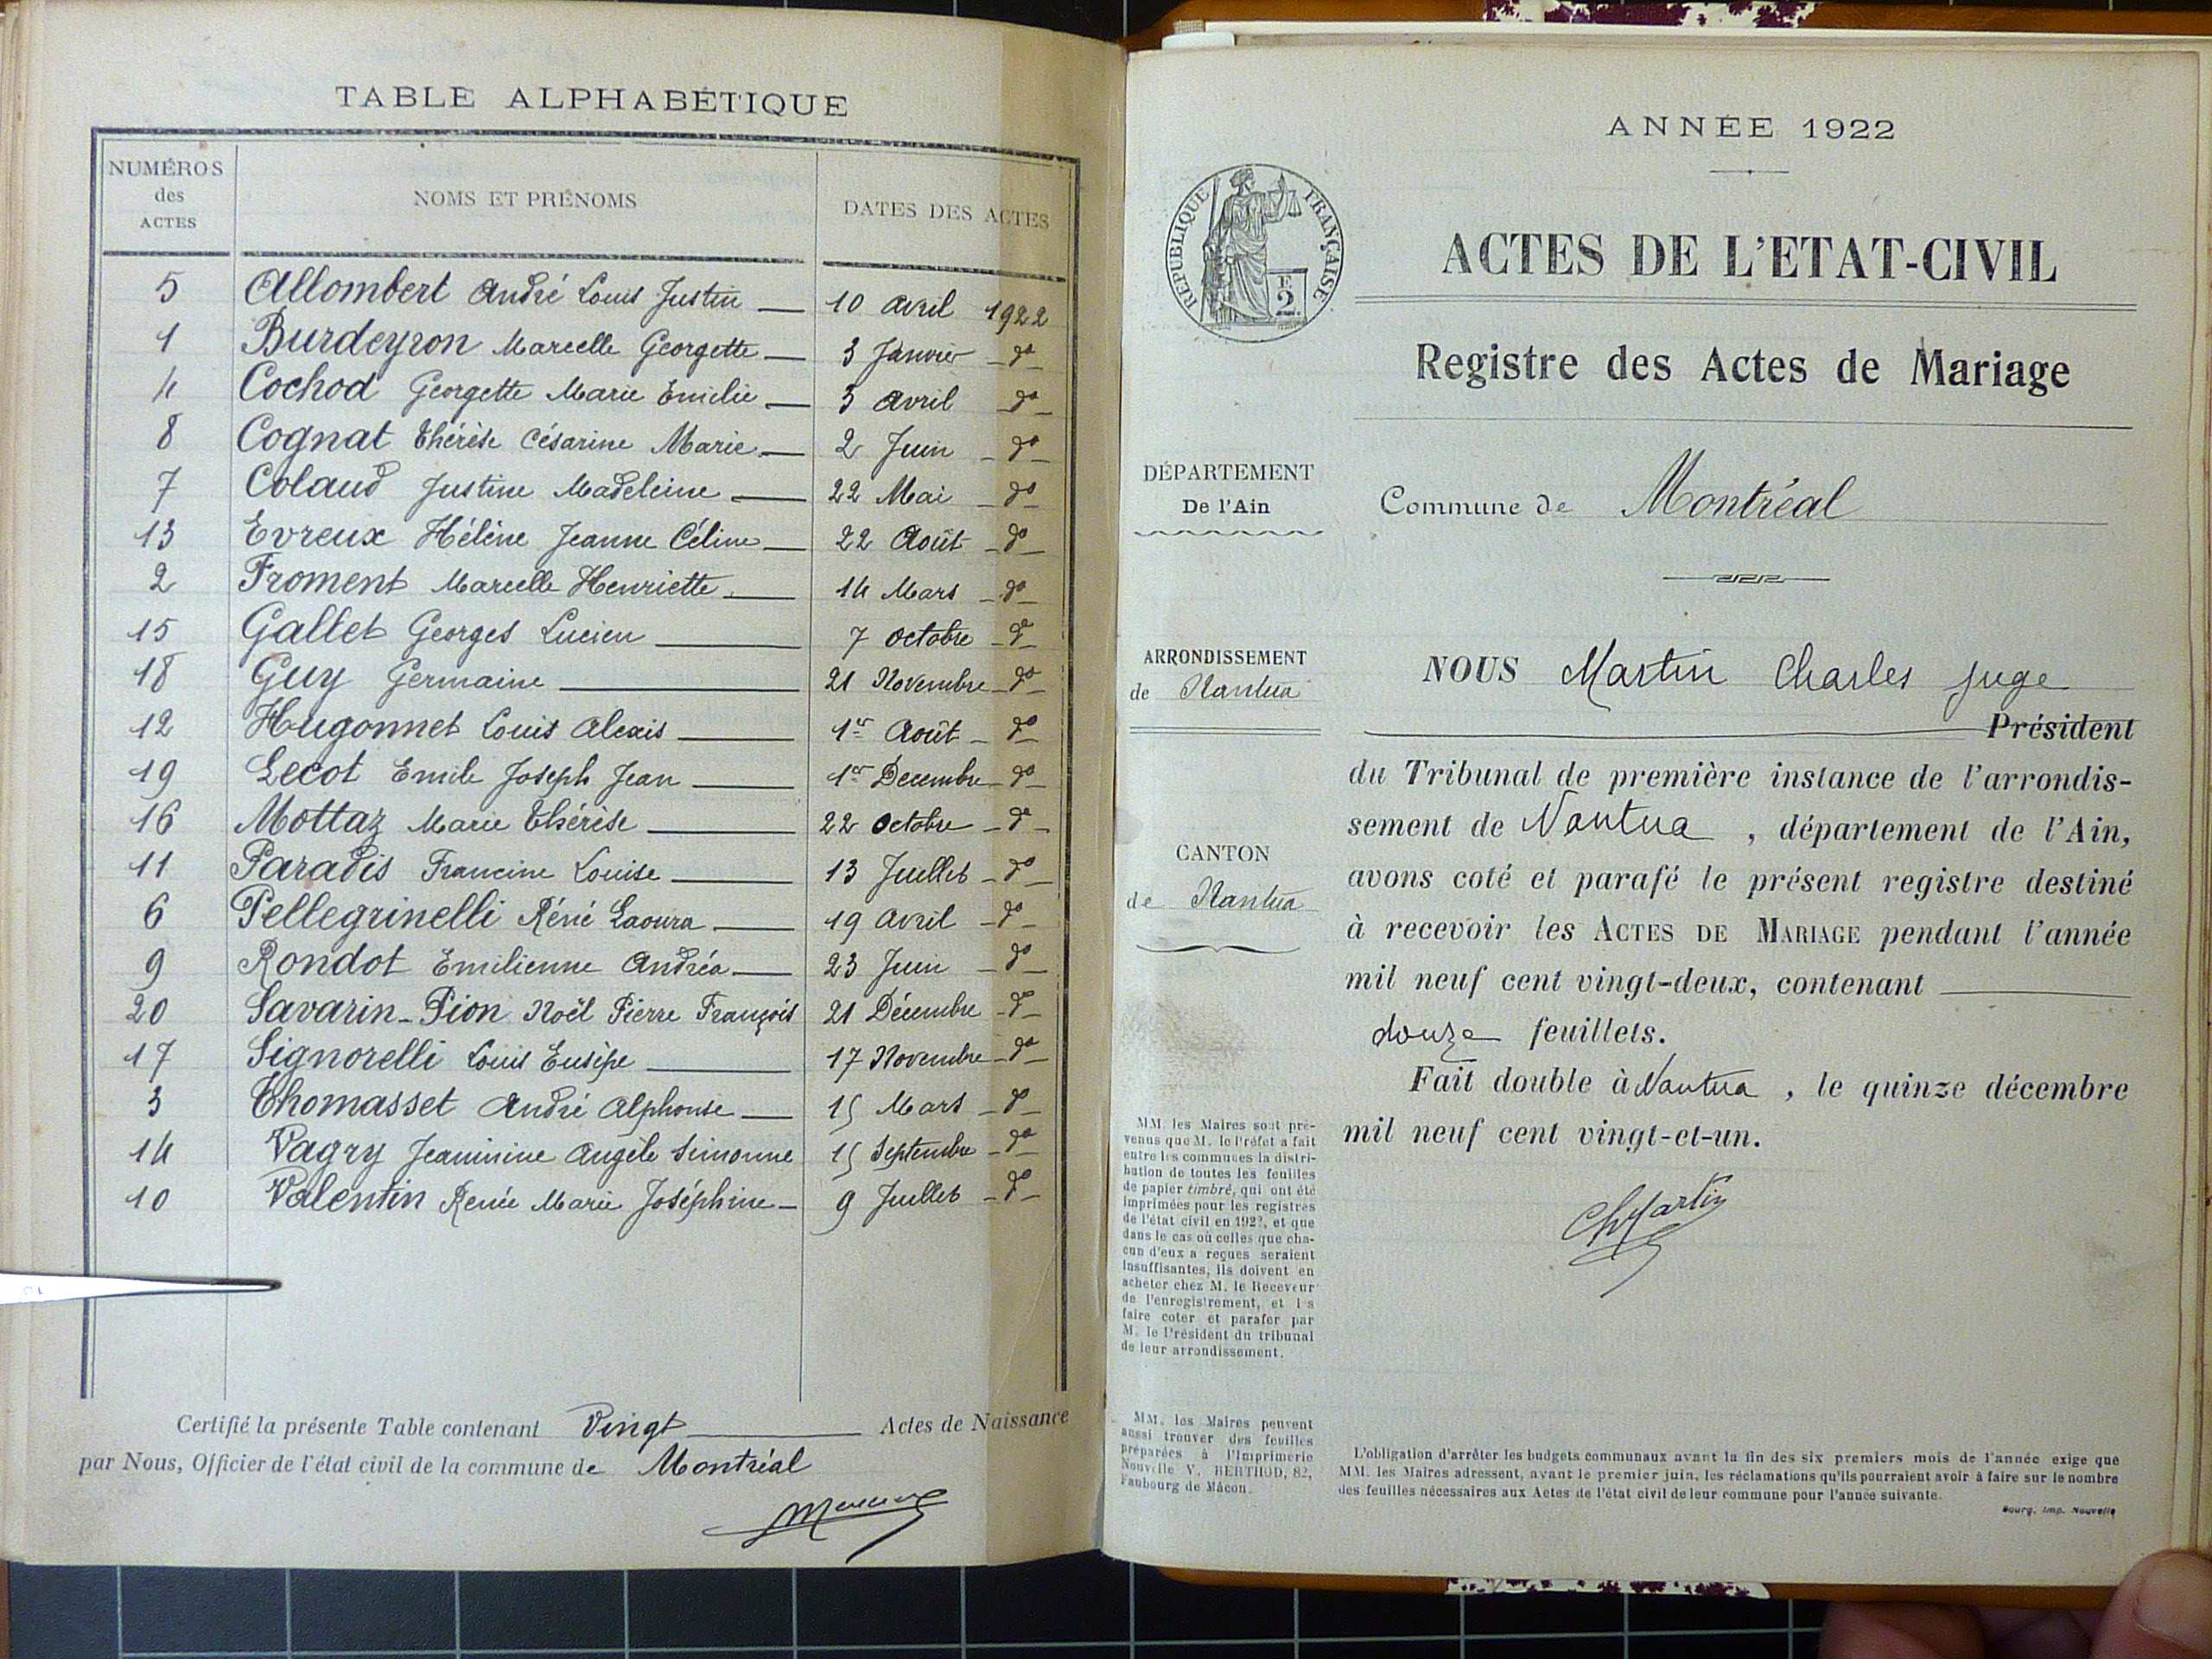 TABLE ALPHABÉTIQUE
NUMÉROS des ACTES NOMS ET PRÉNOMS DATES DES ACTES
5 Allombert André Louis Justin 10 Avril 1922
1 Burdeyron Marcelle Georgette 3 Janvier do
4 Cochod Georgette Marie Emilie 5 Avril do
8 Cognat Thérèse Césarine Marie 2 Juin do
7 Colaud Justine Madeleine 22 Mai do
13 Evreux Hélène Jeanne Céline 22 Août do
2 Froment Marcelle Henriette 14 Mars do
15 Gallet Georges Lucien 7 Octobre do
18 Guy Germaine 21 Novembre do
12 Hugonnet Louis Alexis 1er Août do
19 Lecot Emile Joseph Jean 1er Decembre do
16 Mottaz Marie Thérèse 22 Octobre do
11 Paradis Francine Louise 13 Juillet do
6 Pellegrinelli Réné Laoura 19 Avril do
9 Rondot Emilienne Andréa 23 Juin do
20 Savarin-Pion Noël Pierre François 21 Décembre do
17 Signorelli Louis Eusèpe 17 Novembre do
3 Thomasset André Alphonse 15 Mars do
14 Vagry Jeaninine Angèle Simonne 15 Septembre do
10 Valentin Renée Marie Joséphine 9 Juillet do
Certifié la présente Table contenant Vingt Actes de Naissance
par Nous, Officier de l'état civil de la commune de Montréal
ANNÉE 1922
RÉPUBLIQUE FRANÇAISE
2
ACTES DE L'ETAT-CIVIL
Registre des Actes de Mariage
DÉPARTEMENT
De l'Ain
Commune de Montréal
ARRONDISSEMENT
de Nantua
CANTON
de Nantua
NOUS Martin Charles juge
Président
du Tribunal de première instance de l'arrondis-
sement de Nantua, département de l'Ain,
avons coté et parafé le présent registre destiné
à recevoir les ACTES DE MARIAGE pendant l'année
mil neuf cent vingt-deux, contenant
douze feuillets.
Fait double à Nantua, le quinze décembre
mil neuf cent vingt-et-un.
ChMartin
MM. les Maires sont pré-
venus que M. le Préfet a fait
entre les communes la distri-
bution de toutes les feuilles
de papier timbré, qui ont été
imprimées pour les registres
de l'état civil en 1922, et que
dans le cas où celles que cha-
cun d'eux a reçues seraient
insuffisantes, ils doivent en
acheter chez M. le Receveur
de l'enregistrement, et les
faire coter et parafer par
M. le Président du tribunal
de leur arrondissement.
MM. les Maires peuvent
aussi trouver des feuilles
préparées à l'Imprimerie
Nouvelle V. BERTHOD, 82,
Faubourg de Mâcon.
L'obligation d'arrêter les budgets communaux avant la fin des six premiers mois de l'année exige que
MM. les Maires adressent, avant le premier juin, les réclamations qu'ils pourraient avoir à faire sur le nombre
des feuilles nécessaires aux Actes de l'état civil de leur commune pour l'année suivante.
Bourg, Imp. Nouvelle